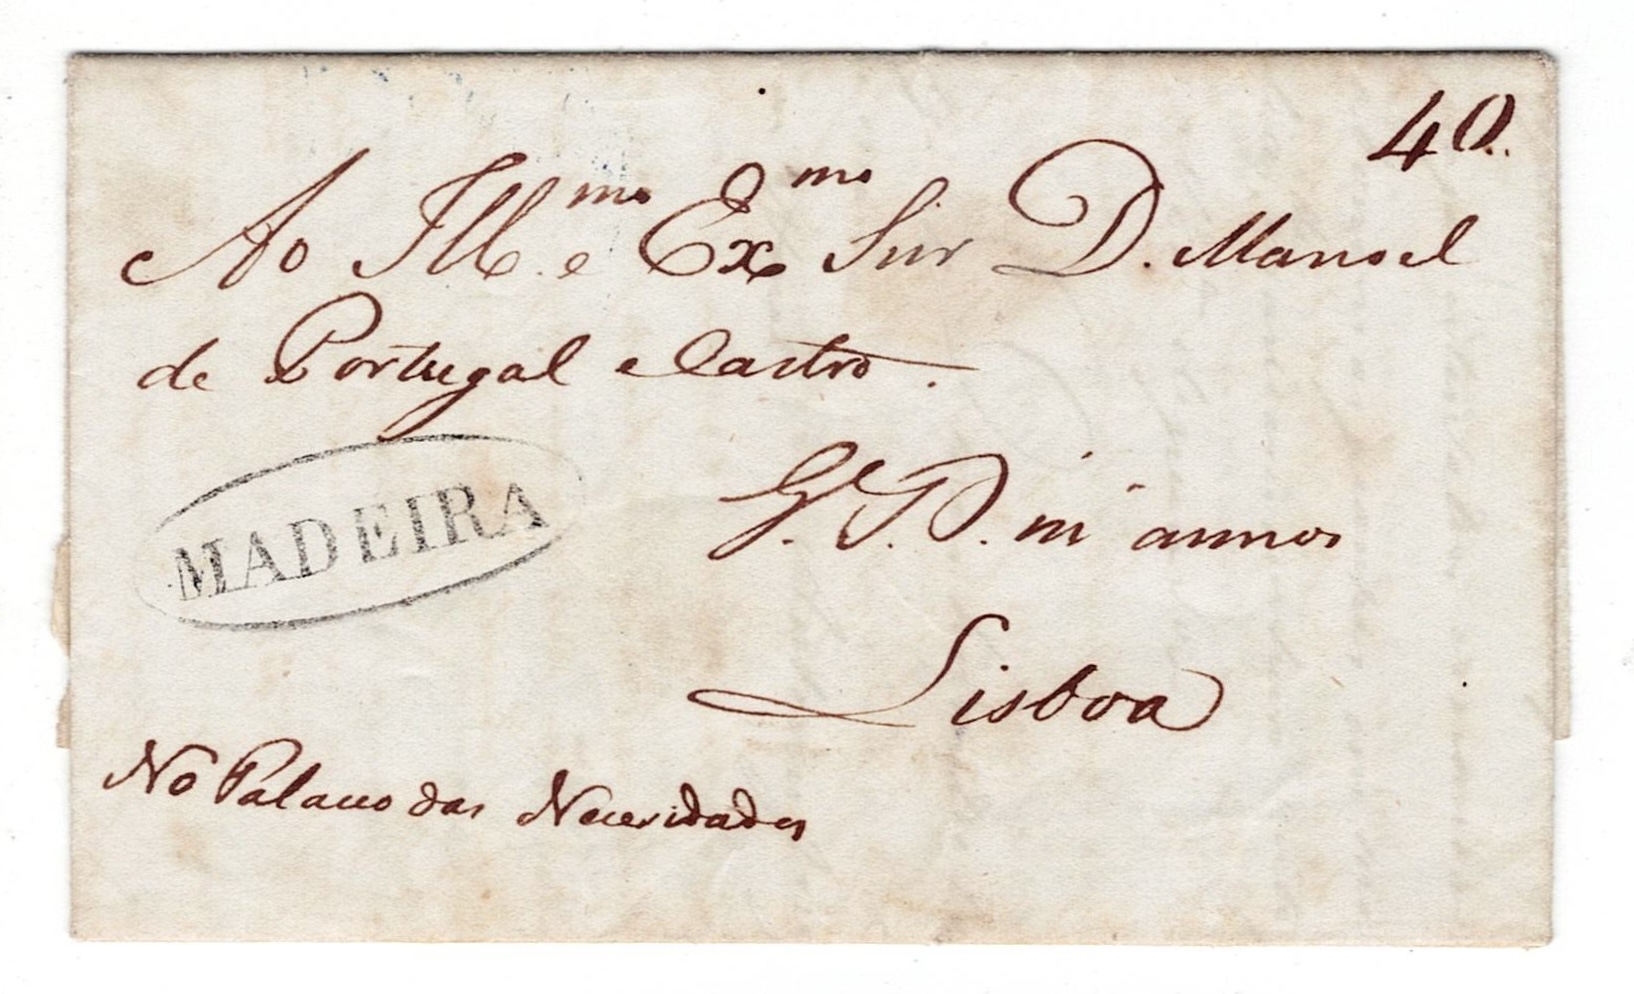 40..
Ao Ill.mo e Ex.mo Snr D. Manoel
de Portugal e Castro.
MADEIRA
G. D. D. m' annos
Lisboa
No Palacio das Necesidades